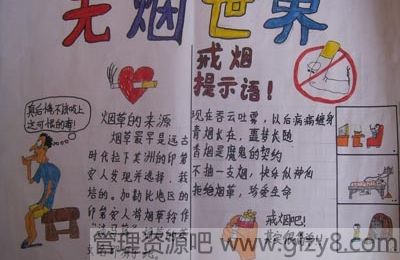 无烟世界
戒烟
提示语！
真后悔不该吸上
这可恨的毒！
烟草的来源
烟草最早是远古
时代拉丁美洲的印第
安人发现并选择，栽
培的。加勒比地区的
印第安人将烟草称作
现在吞云吐雾，以后病痛缠身
青烟长在，噩梦长随
香烟是魔鬼的契约
不抽一支烟，快乐似神仙
拒绝烟草，珍爱生命
戒烟吧！
其实很简单！
管理资源吧 www.glzy8.com